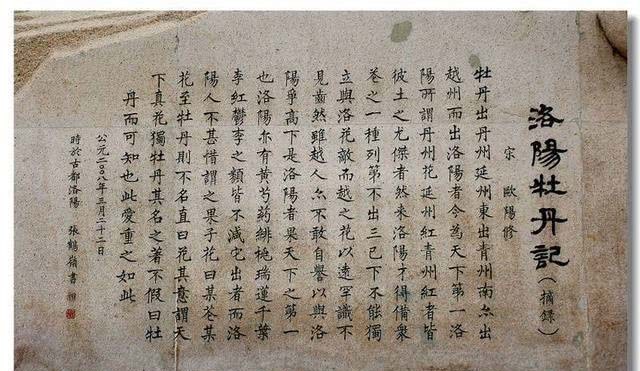 洛陽牡丹記(摘錄)
宋 歐陽修
牡丹出丹州延州東出青州南亦出
越州而出洛陽者今為天下第一洛
陽所謂丹州花延州紅青州紅者皆
彼土之尤傑者然來洛陽才得備衆
花之一種列第不出三已下不能獨
立與洛花敵而越之花以遠罕識不
見齒然雖越人亦不敢自譽以與洛
陽爭高下是洛陽者果天下之第一
也洛陽亦有黃芍藥緋桃瑞蓮千葉
李紅鬱李之類皆不減它出者而洛
陽人不甚惜謂之果子花曰某花某
花至牡丹則不名直曰花其意謂天
下真花獨牡丹其名之著不假曰牡
丹而可知也此愛重之如此
公元二〇〇八年三月二十二日
時於古都洛陽 張鶴嶺書